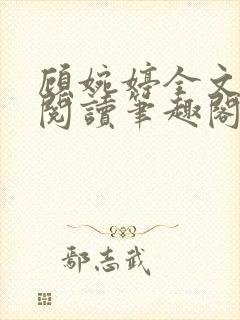 顾婉婷全文
閱讀筆趣閣
鄢志武